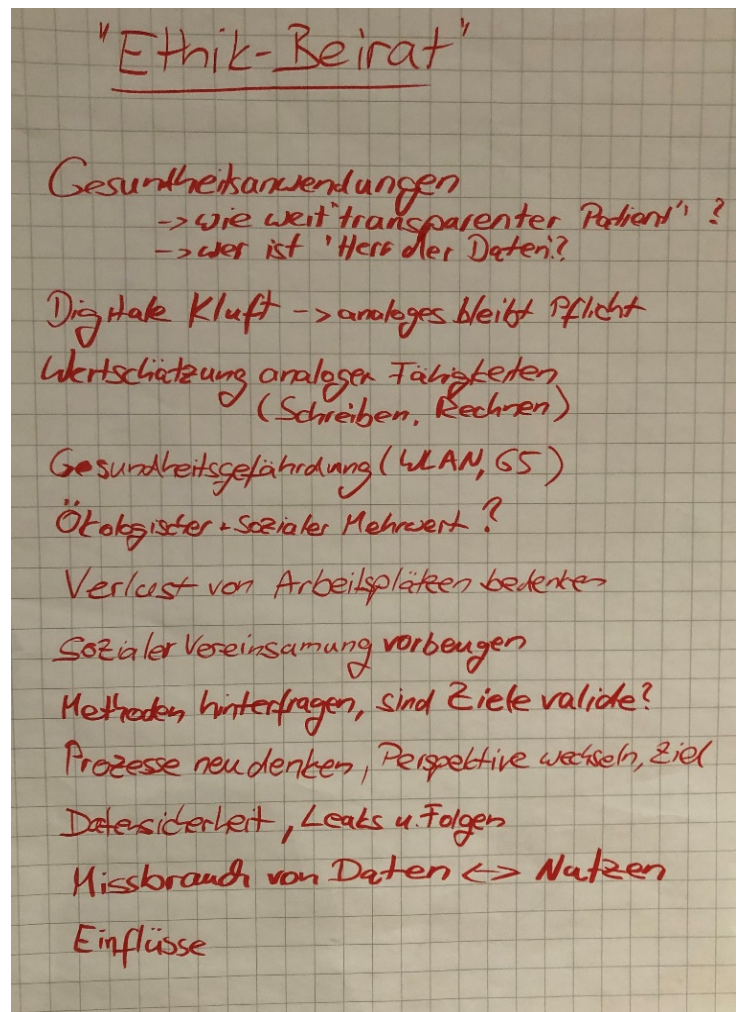 "Ethik-Beirat"
Gesundheitsanwendungen
-> wie weit "transparenter Patient" ?
-> wer ist 'Herr der Daten'?
Digitale Kluft -> analoges bleibt Pflicht
Wertschätzung analoger Fähigkeiten
(Schreiben, Rechnen)
Gesundheitsgefährdung (WLAN, G5)
Ökologischer + Sozialer Mehrwert?
Verlust von Arbeitsplätzen bedenken
Sozialer Vereinsamung vorbeugen
Methoden hinterfragen, sind Ziele valide?
Prozesse neu denken, Perspektive wechseln, Ziel
Datensicherheit, Leaks u. Folgen
Missbrauch von Daten <-> Nutzen
Einflüsse